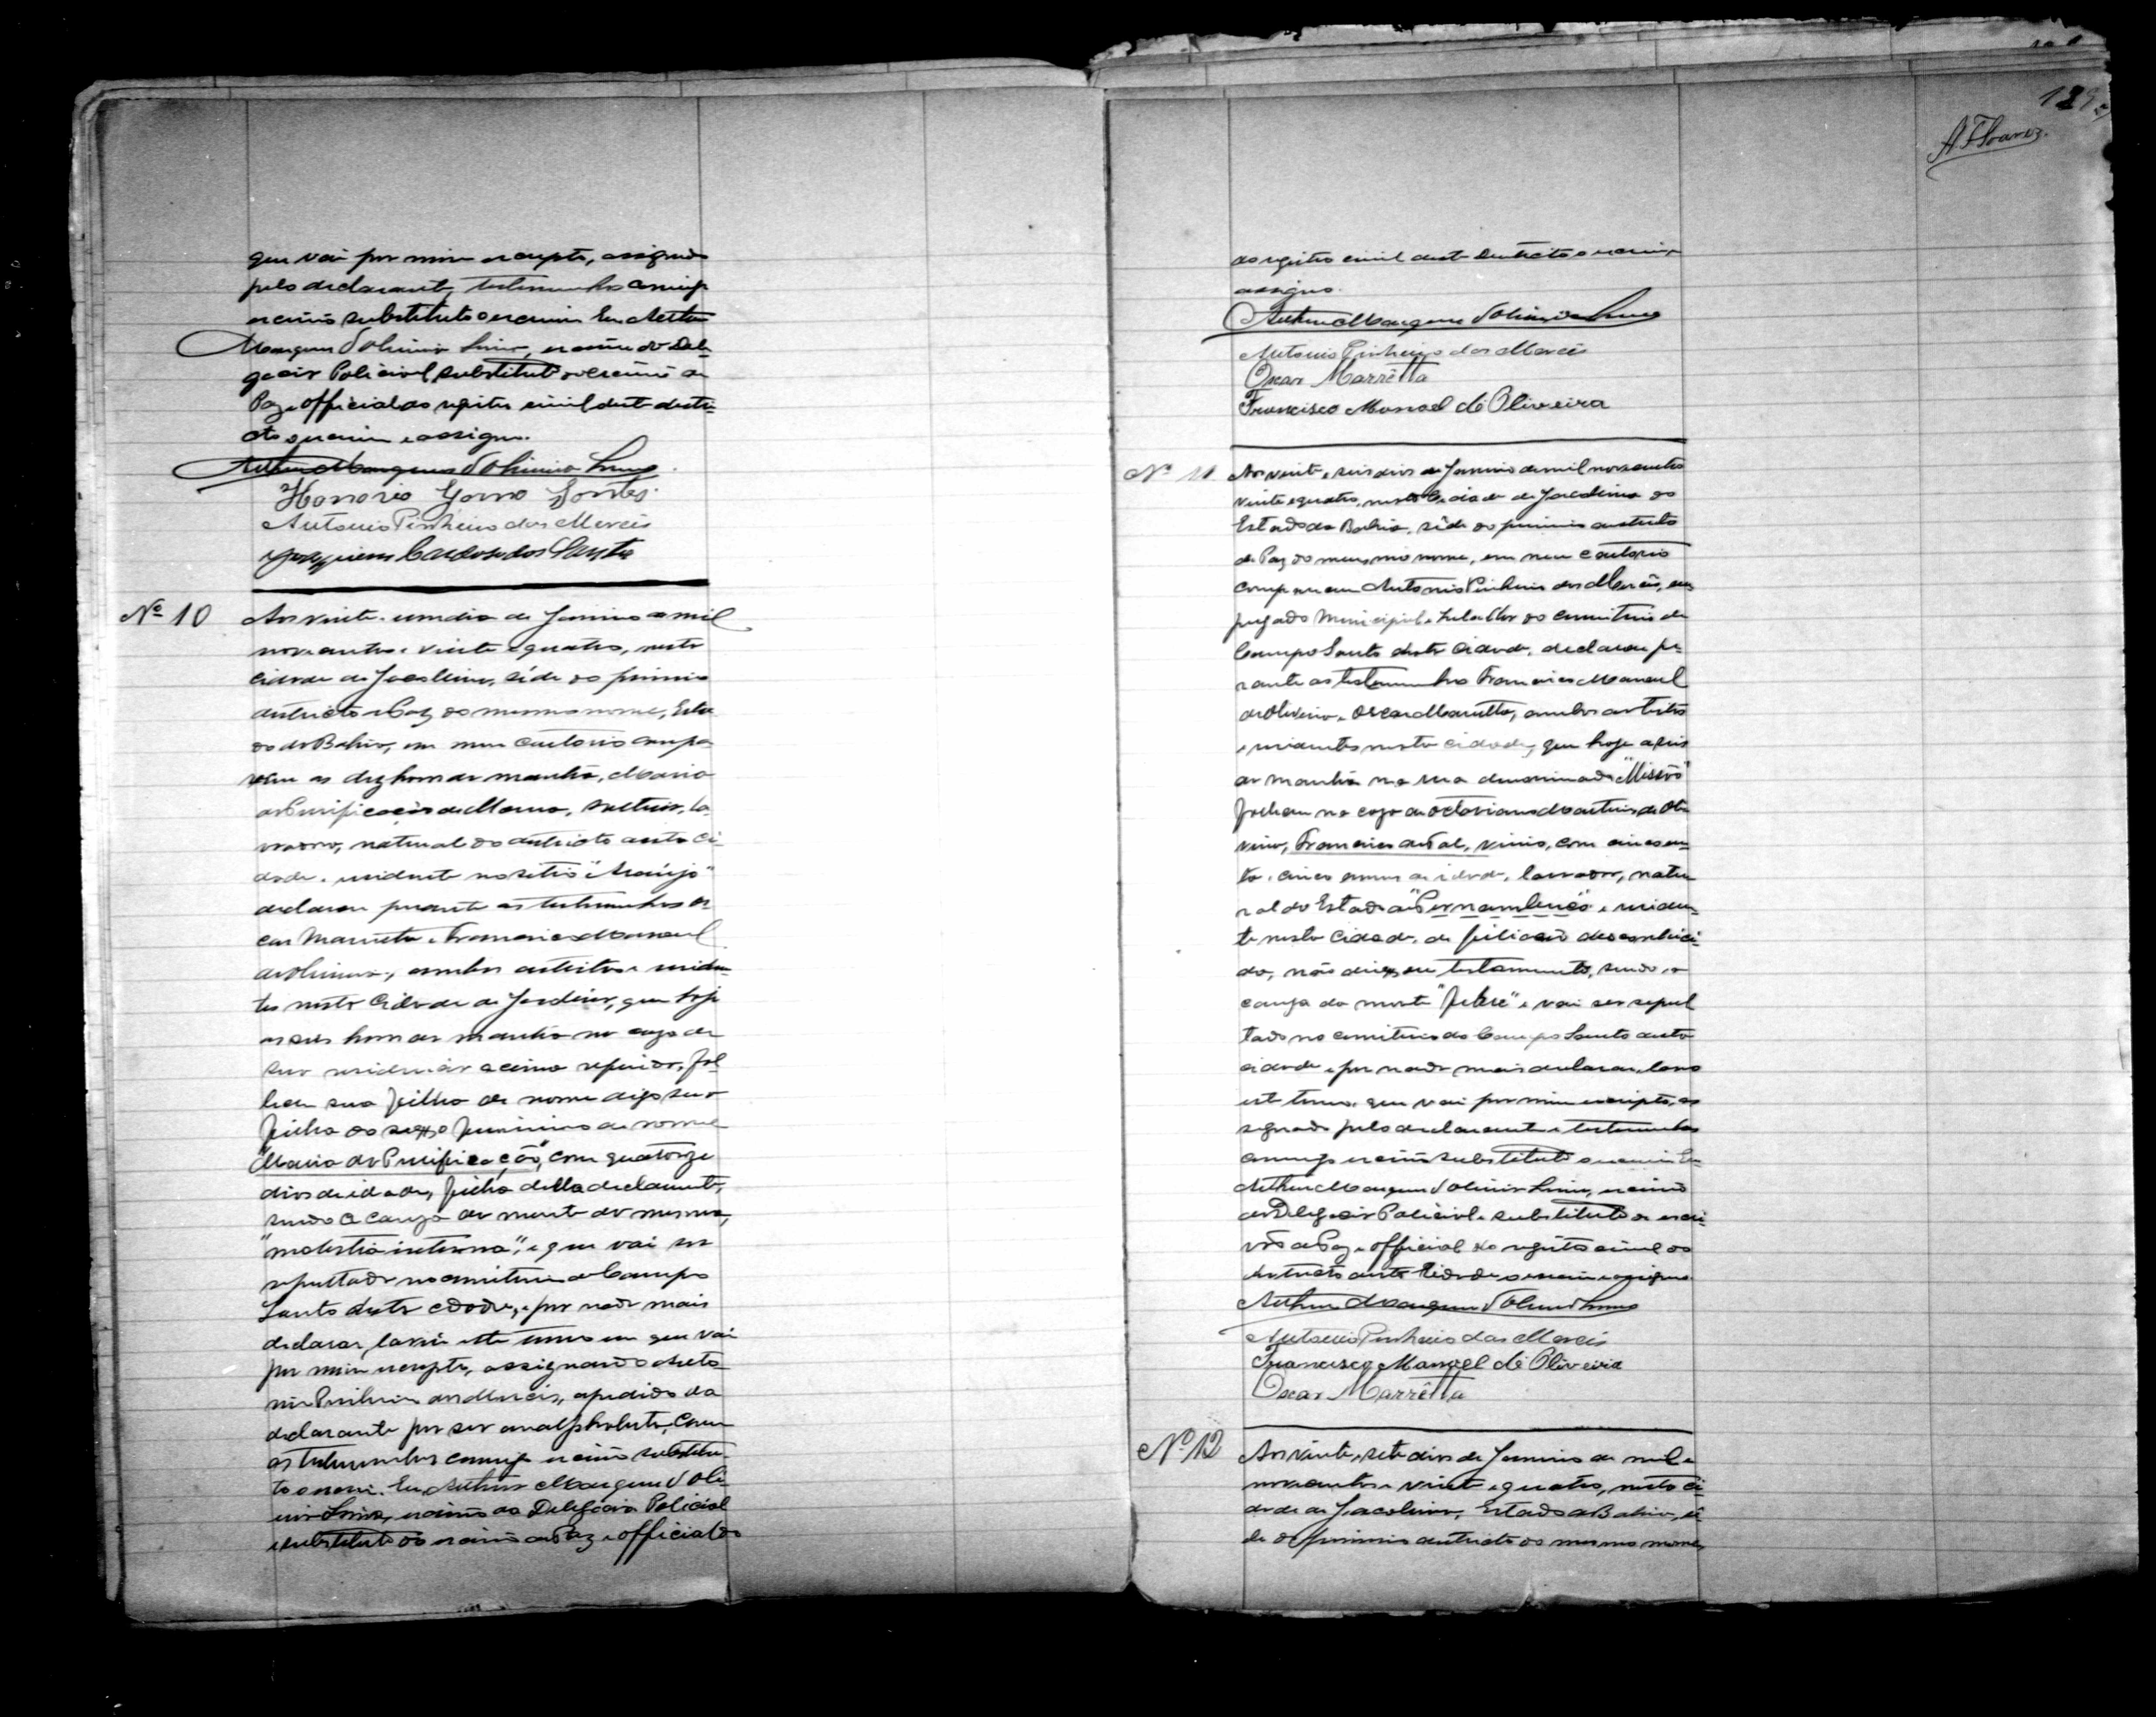 que vai por mim escripto, assignado
pelo declarante, testemunhas comigo
escrivão substituto o escrevi. Eu Arthur
Marques d'Oliveira Lima, escrivão da Dele-
gacia Policial, substituto do escrivão de
Paz e official do registro civil deste distri-
cto o escrevi e assigno.
Arthur Marques d'Oliveira Lima
Honorio Fontes.
Antonio Pinheiro das Mercês
Joaquim Cardoso dos Santos
Nº 10 Aos vinte e um dia de Janeiro de mil
novecentos e vinte e quatro, nesta
cidade de Jacobina, séde do primeiro
districto de Paz do mesmo nome, Esta-
do da Bahia, em meu cartorio compa-
receu as dez horas da manhã, Maria
da Purificação de solteira, la-
vradora, natural do districto desta ci-
dade e residente no sitio "Araújo"
declarou perante as testemunhas Os-
car Marretta e Francisco Manoel
de Oliveira, ambos artistas e residen-
tes nesta Cidade de Jacobina, que hoje
as seis horas da manhã na caza de
sua residencia acima referida, fal-
leceu sua filha de nome digo sua
filha do sexo feminino de nome
"Maria da Purificação", com quatorze
dias de idade, filha della declarante,
sendo a cauza da morte da mesma,
"molestia interna", e que vai ser
sepultada no cemiterio do Campo
Santo desta cidade, e por nada mais
declarar, lavrei este termo em que vai
por mim escripto, assignando Anto-
nio Pinheiro das Mercês, a pedido da
declarante por ser analphabeta, com
as testemunhas comigo escrivão substitu-
to o escrevi. Eu, Arthur Marques d'Oli-
veira Lima, escrivão da Delegacia Policial
e substituto do escrivão de Paz e official do
A F Soares.
do registro civil deste districto o escrevi e
assigno.
Arthur Marques d'Oliveira Lima
Antonio Pinheiro das Mercês
Oscar Marrêtta
Francisco Manoel de Oliveira
Nº 11 Aos vinte e seis dias de Janeiro de mil novecentos
vinte e quatro, nesta Cidade de Jacobina do
Estado da Bahia, séde do primeiro districto
de Paz do mesmo nome, em meu cartorio
compareceu Antonio Pinheiro das Mercês, em-
pregado Municipal e zelador do cemiterio do
Campo Santo desta Cidade, declarou pe-
rante as testemunhas Francisco Manoel
de Oliveira e Oscar Marretta, ambos artistas
e residentes nesta cidade, que hoje as seis
da manhã na rua denominada "Missão"
falleceu na caza de Octaviano Martins de Oli-
veira, Francisco de Tal, viuvo, com cincoen-
ta e cinco annos de idade, lavrador, natu-
ral do Estado de "Pernambuco" e residen-
te nesta Cidade, de filiação desconheci-
da, não deixou testamento, sendo a
cauza da morte "febre" e vai ser sepul-
tado no cemiterio do Campo Santo desta
cidade e por nada mais declarar, lavro
este termo que vai por mim escripto, as-
signado pelo declarante e testemunhas
comigo escrivão substituto o escrevi. Eu
Arthur Marques d'Oliveira Lima, escrivão
da Delegacia Policial e substituto do escri-
vão de Paz e official do registro civil do
districto desta Cidade o escrevi e assigno.
Arthur Marques d'Oliveira Lima
Antonio Pinheiro das Mercês
Francisco Manoel de Oliveira
Oscar Marrêtta
Nº 12 Aos vinte e sete dias de Janeiro de mil e
novecentos e vinte e quatro, nesta Ci-
dade de Jacobina, Estado da Bahia, sé-
de do primeiro districto do mesmo nome,